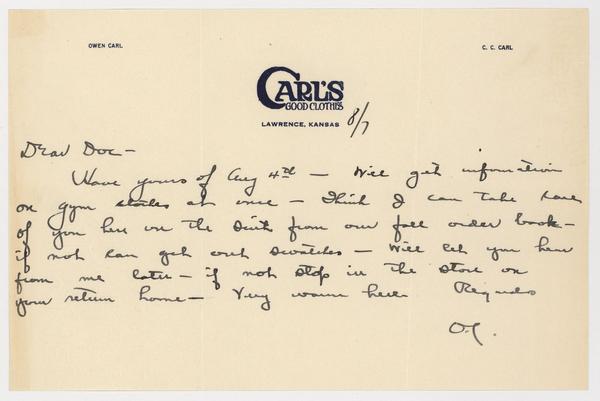 OWEN CARL
C. C. CARL
CARL'S
GOOD CLOTHES
LAWRENCE, KANSAS 8/7
Dear Doc —
Have yours of Aug 4th — Will get information
on gym at once — Think I can take care
of you here on the suits from our fall order book —
if not can get out swatches — Will let you hear
from me later — if not stop in the store on
your return home — Very warm here Regards
O.C.